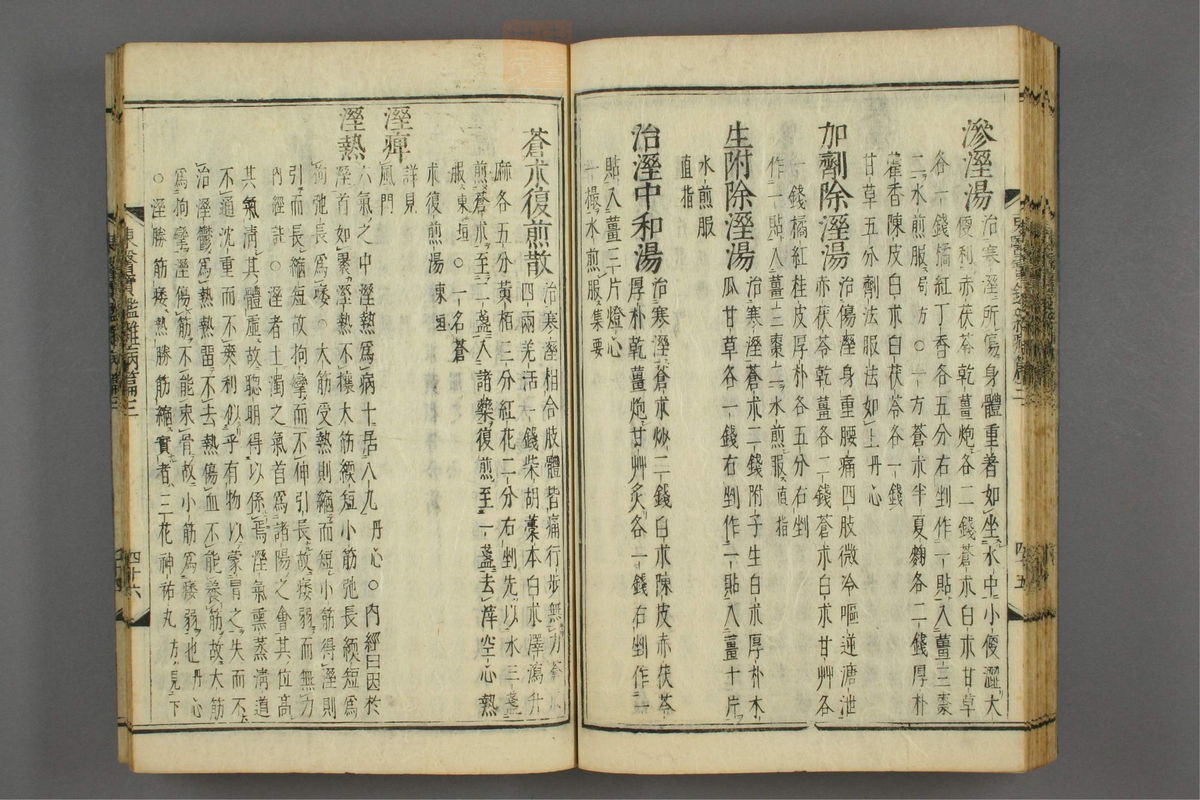 滲溼湯 治寒溼所傷身體重著如坐水中小便澁大
便利赤茯苓乾薑炮各二錢蒼朮白朮甘草
各一錢橘紅丁香各五分右剉作一貼入薑三棗
二水煎服局方○一方蒼朮半夏麴各二錢厚朴
藿香陳皮白朮白茯苓各一錢
甘草五分劑法服法如上丹心
加劑除溼湯 治傷溼身重腰痛四肢微冷嘔逆溏泄
赤茯苓乾薑各二錢蒼朮白朮甘艸各
一錢橘紅桂皮厚朴各五分右剉
作一貼入薑三棗二水煎服直指
生附除溼湯 治寒溼蒼朮二錢附子生白朮厚朴木
瓜甘草各一錢右剉作一貼入薑十片
水煎服
直指
治溼中和湯 治寒溼蒼朮炒二錢白朮陳皮赤茯苓
厚朴乾薑炮甘艸炙各一錢右剉作一
貼入薑三片燈心
一撮水煎服集要
蒼朮復煎散 治寒溼相合肢體皆痛行步無力蒼朮
四兩羌活一錢柴胡藁本白朮澤瀉升
麻各五分黃栢三分紅花二分右剉先以水三盞
煎蒼朮至二盞入諸藥復煎至一盞去滓空心熱
服東垣○一名蒼
朮復煎湯東垣
溼痺 詳見
風門
溼熱 六氣之中溼熱爲病十居八九丹心○內經曰因於
溼首如裹溼熱不攘大筋緛短小筋弛長緛短爲
拘弛長爲痿○大筋受熱則縮而短小筋得溼則
引而長縮短故拘攣而不伸引長故痿弱而無力
內經註○溼者土濁之氣首爲諸陽之會其位高
其氣淸其體虛故聰明得以係焉溼氣熏蒸淸道
不通沈重而不爽利似乎有物以蒙冒之失而不
治溼鬱爲熱熱畱不去熱傷血不能養筋故大筋
爲拘攣溼傷筋不能束骨故小筋爲痿弱也丹心
○溼勝筋痿熱勝筋縮實者三花神祐丸方見下
東醫寶鑑雜病篇三
四十六